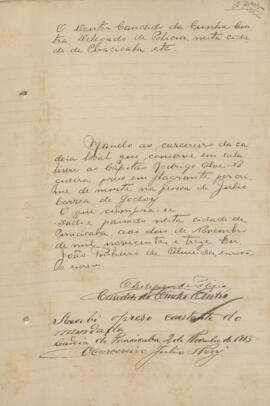 O Doutor Candido da Cunha Cin
tra Delegado de Policia nesta cida
de de Piracicaba etc.
Mando ao carcereiro da ca
deia local que conserve em
o Capitão Rodrigo No
gueira preso em flagrante por cri
me de morte na pessoa de Julio
Correa de Godoy.
O que cumpra-se.
Dado e passado nesta cidade de
Piracicaba, aos dois de Novembro
de mil novecentos e treze. Eu,
João de Almeida, escrivão
O Delegado de Policia
Candido da Cunha Cintra
Recebi o preso constante do
mandado
Cadeia de Piracicaba 2 de 1913
O carcereiro Julio